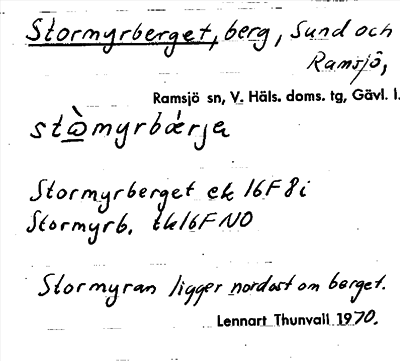 Stormyrberget, berg, Sund och
Ramsjö,
Ramsjö sn, V. Häls. doms. tg, Gävl. l.
stòmyrbærja
Stormyrberget ek 16F8i
Stormyrb. tk16F NO
Stormyran ligger nordost om berget.
Lennart Thunvall 1970.